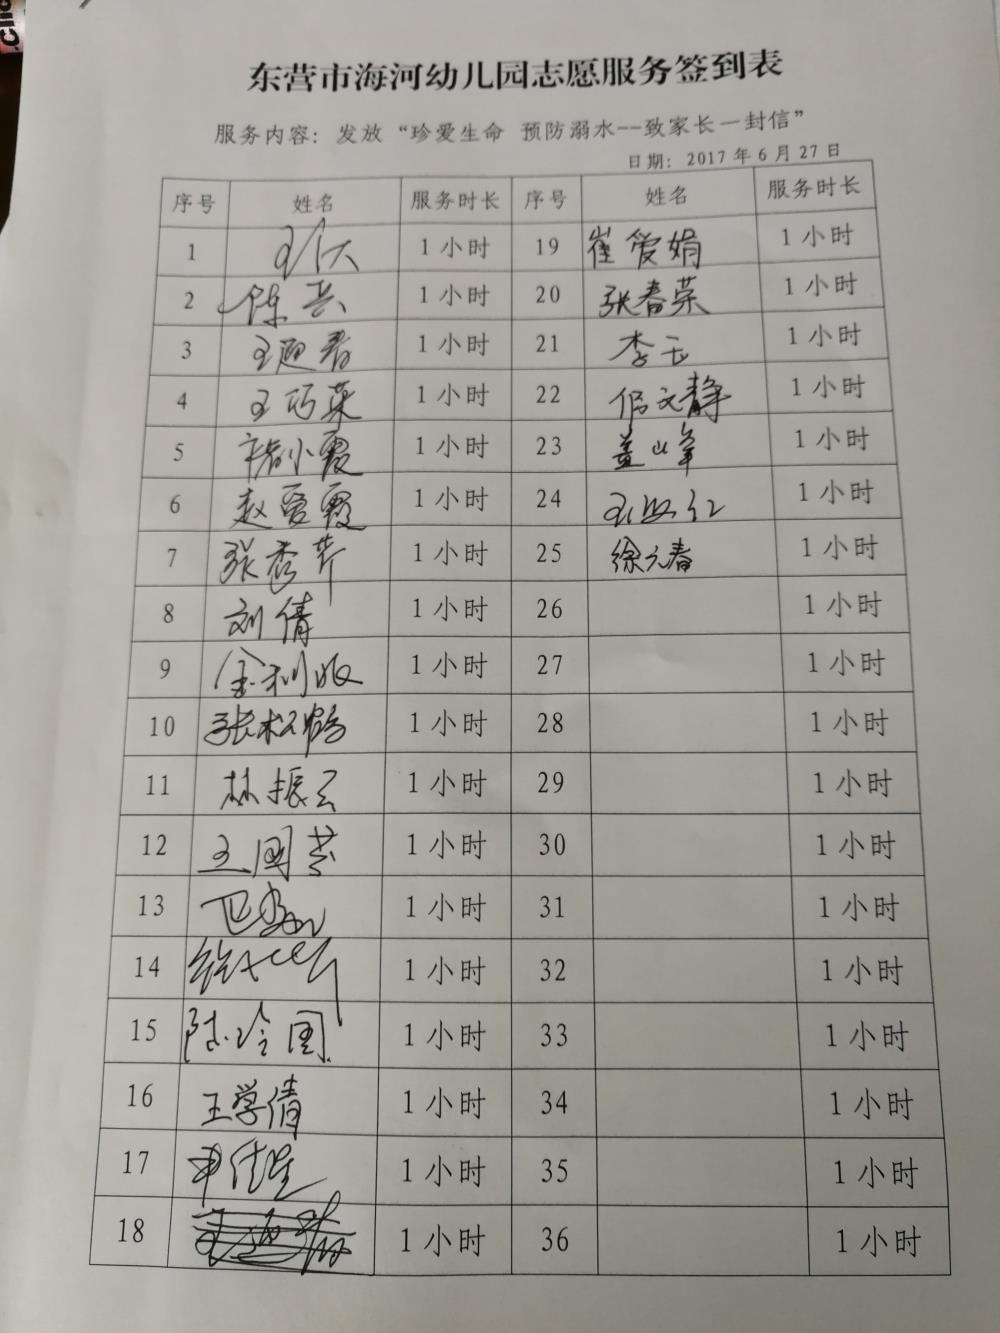 东营市海河幼儿园志愿服务签到表
服务内容：发放“珍爱生命 预防溺水--致家长一封信”
日期：2017年6月27日
序号 姓名 服务时长 序号 姓名 服务时长
1 1小时 19 崔爱娟 1小时
2 陈芸 1小时 20 张春荣 1小时
3 王迎春 1小时 21 李云 1小时
4 王巧英 1小时 22 侯文静 1小时
5 褚小霞 1小时 23 盖山峰 1小时
6 赵爱霞 1小时 24 1小时
7 张秀芹 1小时 25 徐元春 1小时
8 刘倩 1小时 26 1小时
9 金利 1小时 27 1小时
10 张松鹤 1小时 28 1小时
11 林振云 1小时 29 1小时
12 王国芸 1小时 30 1小时
13 1小时 31 1小时
14 1小时 32 1小时
15 陈玲国 1小时 33 1小时
16 王学倩 1小时 34 1小时
17 1小时 35 1小时
18 1小时 36 1小时